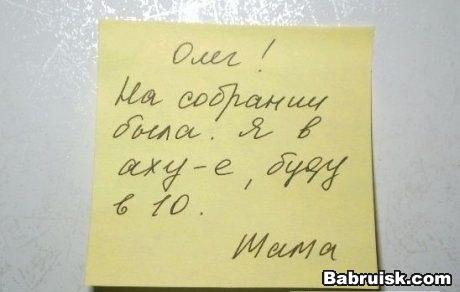 Олег!
На собрании
была. Я в
аху-е, буду
в 10.
Мама
Babruisk.com